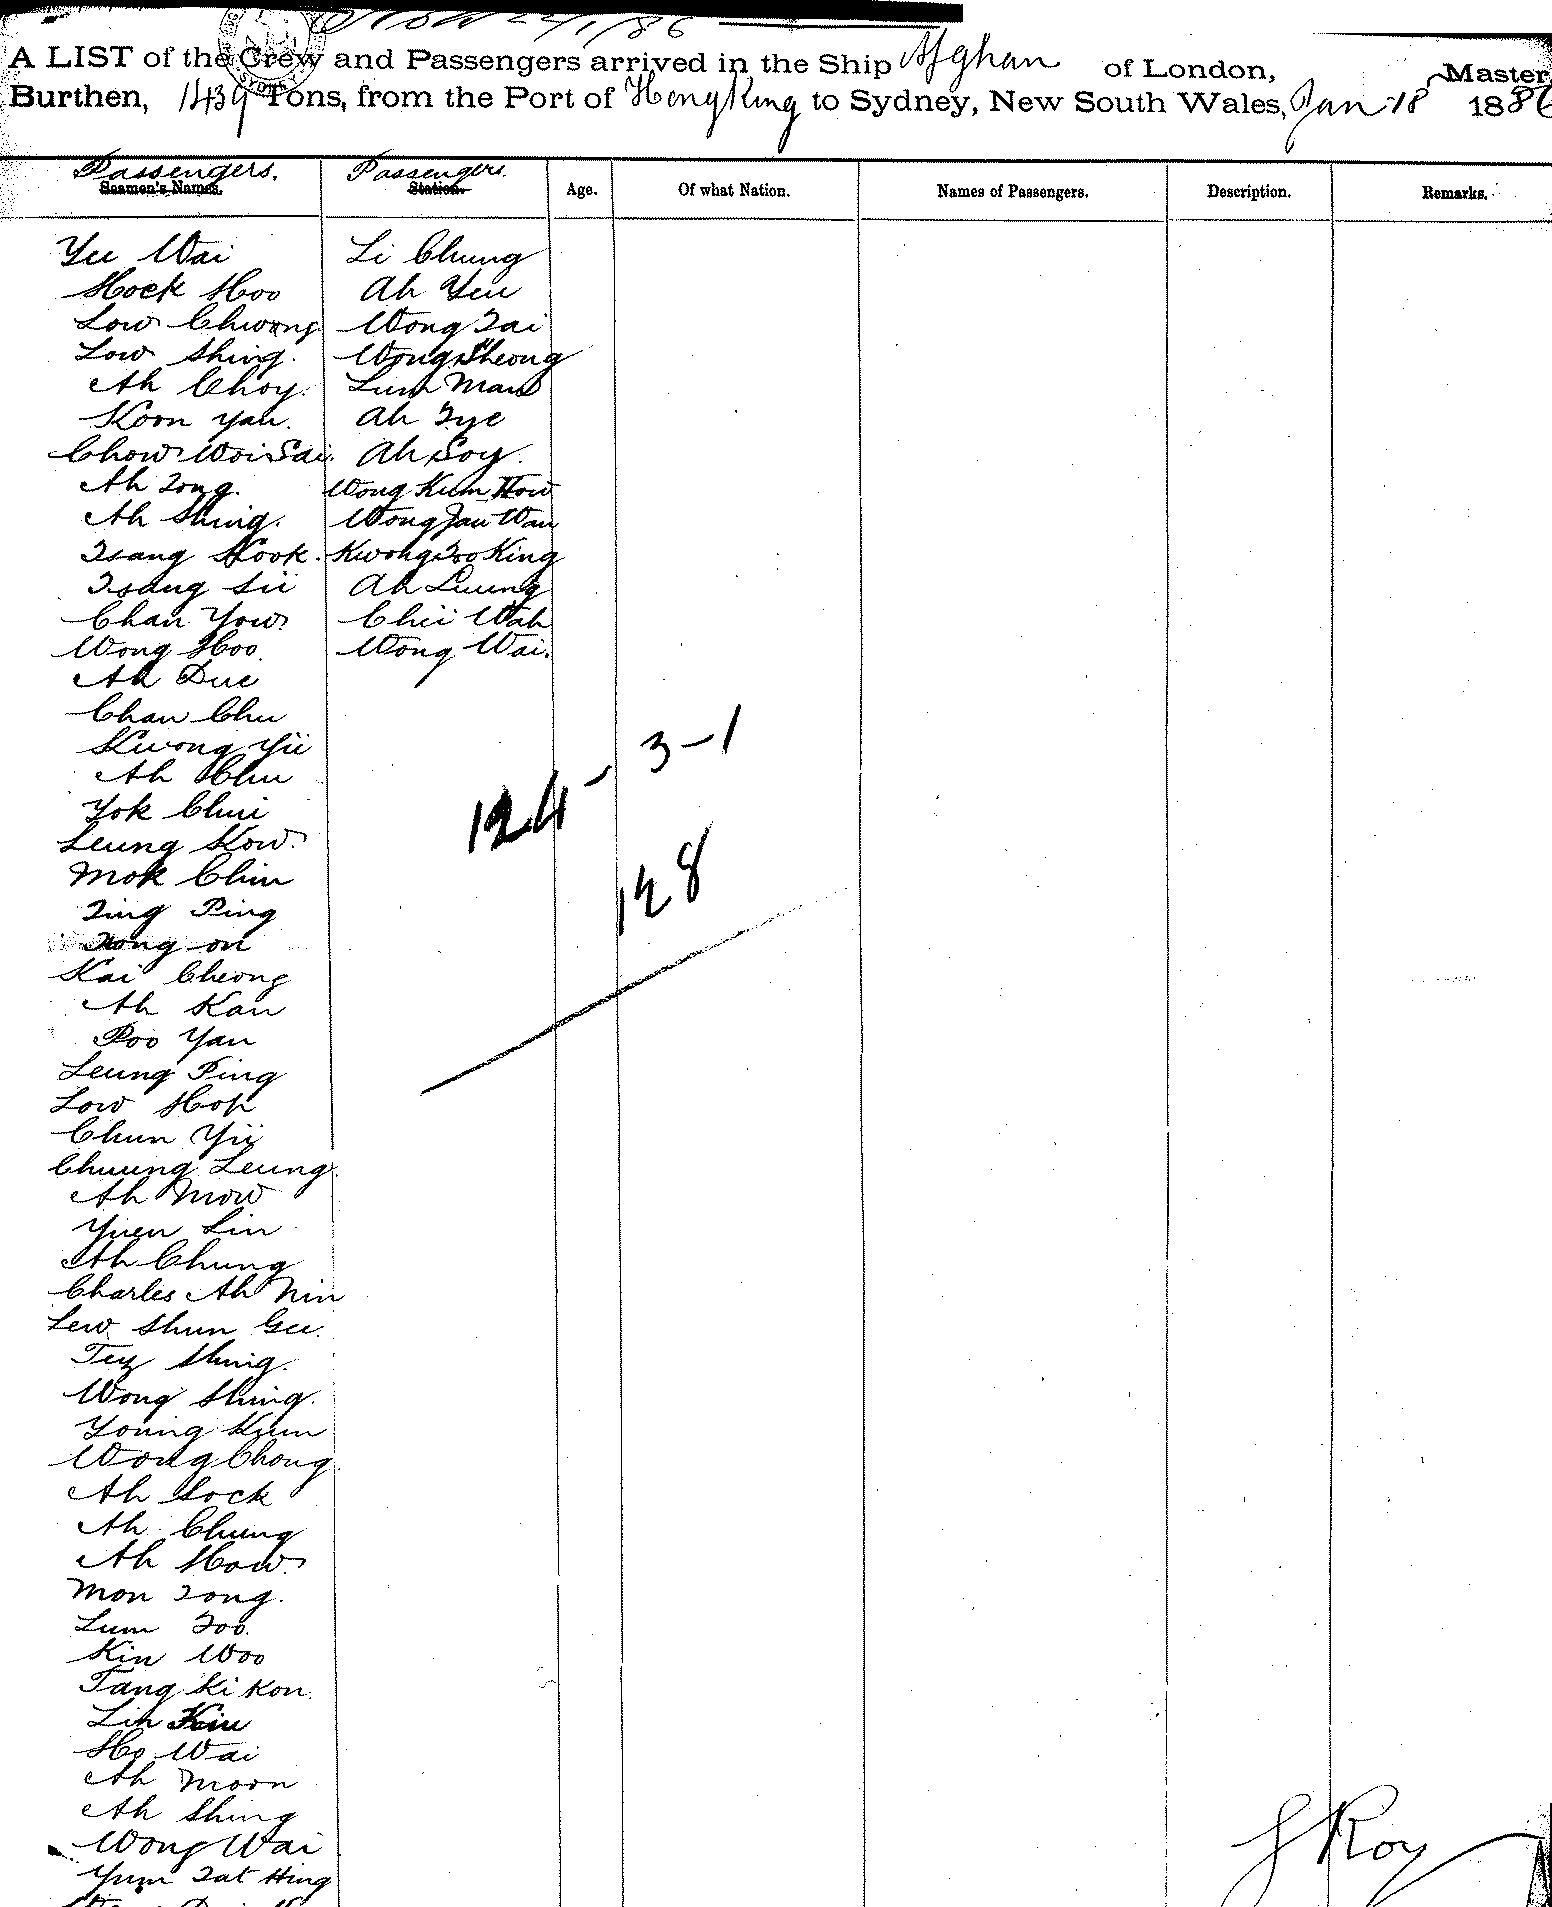 A LIST of the Crew and Passengers arrived in the Ship Afghan of London, Master
Burthen, 1439 Tons, from the Port of Hong Kong to Sydney, New South Wales, Jan 18 1886
Passengers. Passengers.
Seamen's Names. Station. Age. Of what Nation. Names of Passengers. Description. Remarks.
Yee Wai Li Chung
Hock Hoo Ah Yeu
Low Chwong Wong Tai
Low Shing. Wong Sheong
Ah Choy. Lum Man
Koon Yan. Ah Tye
Chow Woi Sai. Ah Soy.
Ah Tong. Wong Kum How
Ah Shing. Wong Jau Wan
Tsang Hook. Kwong Too King
Tsang Sii Ah Leung
Chan Yow. Chii Wah
Wong Hoo. Wong Wai.
Ah Due
Chan Chu
Kwong Yii
Ah Chu
3-1
124-
Yok Chui
Leung Kow.
Mok Chin
128
Ting Ping
Tong on
Kai Cheong
Ah Kan
Poo Yan
Leung Ping
Low Hop
Chun Yii
Chuung Leung.
Ah Mow
Yuen Lin
Ah Chung
Charles Ah Nin
Lew Shun Gee.
Tey Shing.
Wong Shing.
Young Kum
Wong Chong
Ah Sock
Ah Chung
Ah How.
Mon Tong.
Lum Too.
Kin Woo
Tang Ki Kon.
Lin Kiu
Ho Wai
Ah Moon
Ah Shing
Wong Wai
Yum Tat Hing
Roy